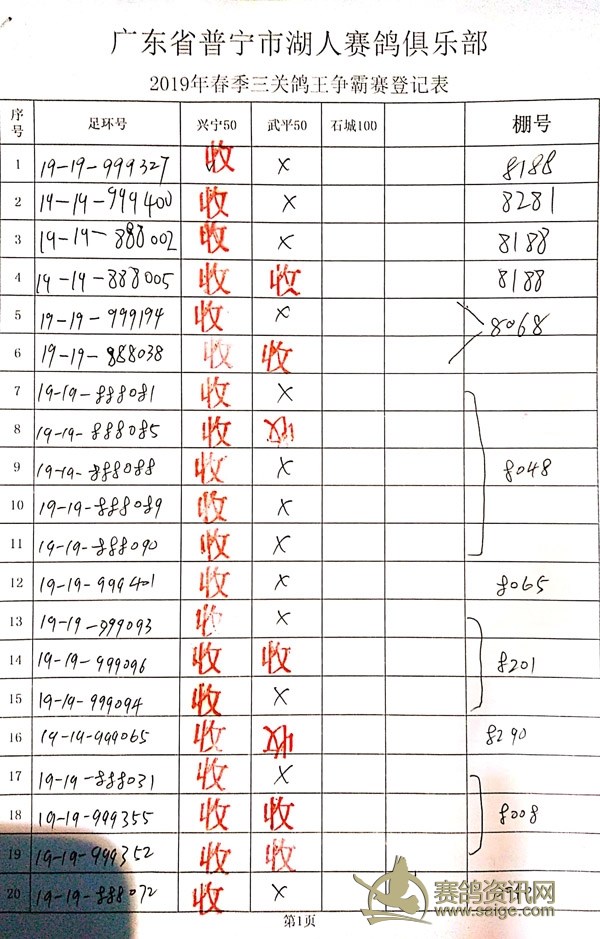 广东省普宁市湖人赛鸽俱乐部
2019年春季三关鸽王争霸赛登记表
序号 足环号 兴宁50 武平50 石城100 棚号
1 19-19-999327 收 × 8188
2 19-19-999400 收 × 8281
3 19-19-888002 收 × 8188
4 19-19-888005 收 收 8188
5 19-19-999194 收 × 8068
6 19-19-888038 收 收
7 19-19-888081 收 ×
8 19-19-888085 收 收
9 19-19-888088 收 × 8048
10 19-19-888089 收 ×
11 19-19-888090 收 ×
12 19-19-999401 收 × 8065
13 19-19-999093 收 ×
14 19-19-999096 收 收 8201
15 19-19-999094 收 ×
16 19-19-999065 收 收 8290
17 19-19-888031 收 ×
18 19-19-999355 收 收 8008
19 19-19-999352 收 收
20 19-19-888072 收 ×
第1页
赛鸽资讯网
www.saige.com